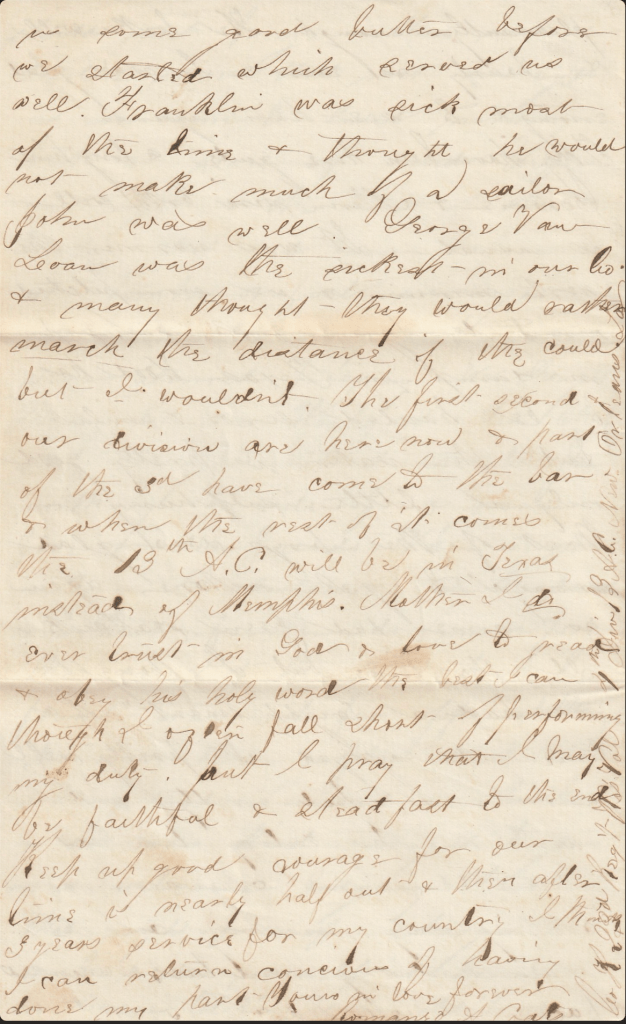 us some good butter before
we started which served us
well. Franklin was sick most
of the time & thought he would
not make much of a sailor
John was well. George Van
Loan was the sickest in our Co.
& many thought they would rather
march the distance if the could
but I wouldn't. The first second &
our division are here now & part
of the 3d have come to the bar
& when the rest of it comes
the 13th A.C. will be in Texas
instead of Memphis. Mother I do
ever trust in God & love to read
& obey his holy word the best I can
though I often fall short of performing
my duty. but I pray that I may
be faithful & steadfast to the end
Keep up good courage for our
time is nearly half out & then after
3 years service for my country I
I can return concious of having
done my part Yours in love forever
Div 13 A.C. New Orleans